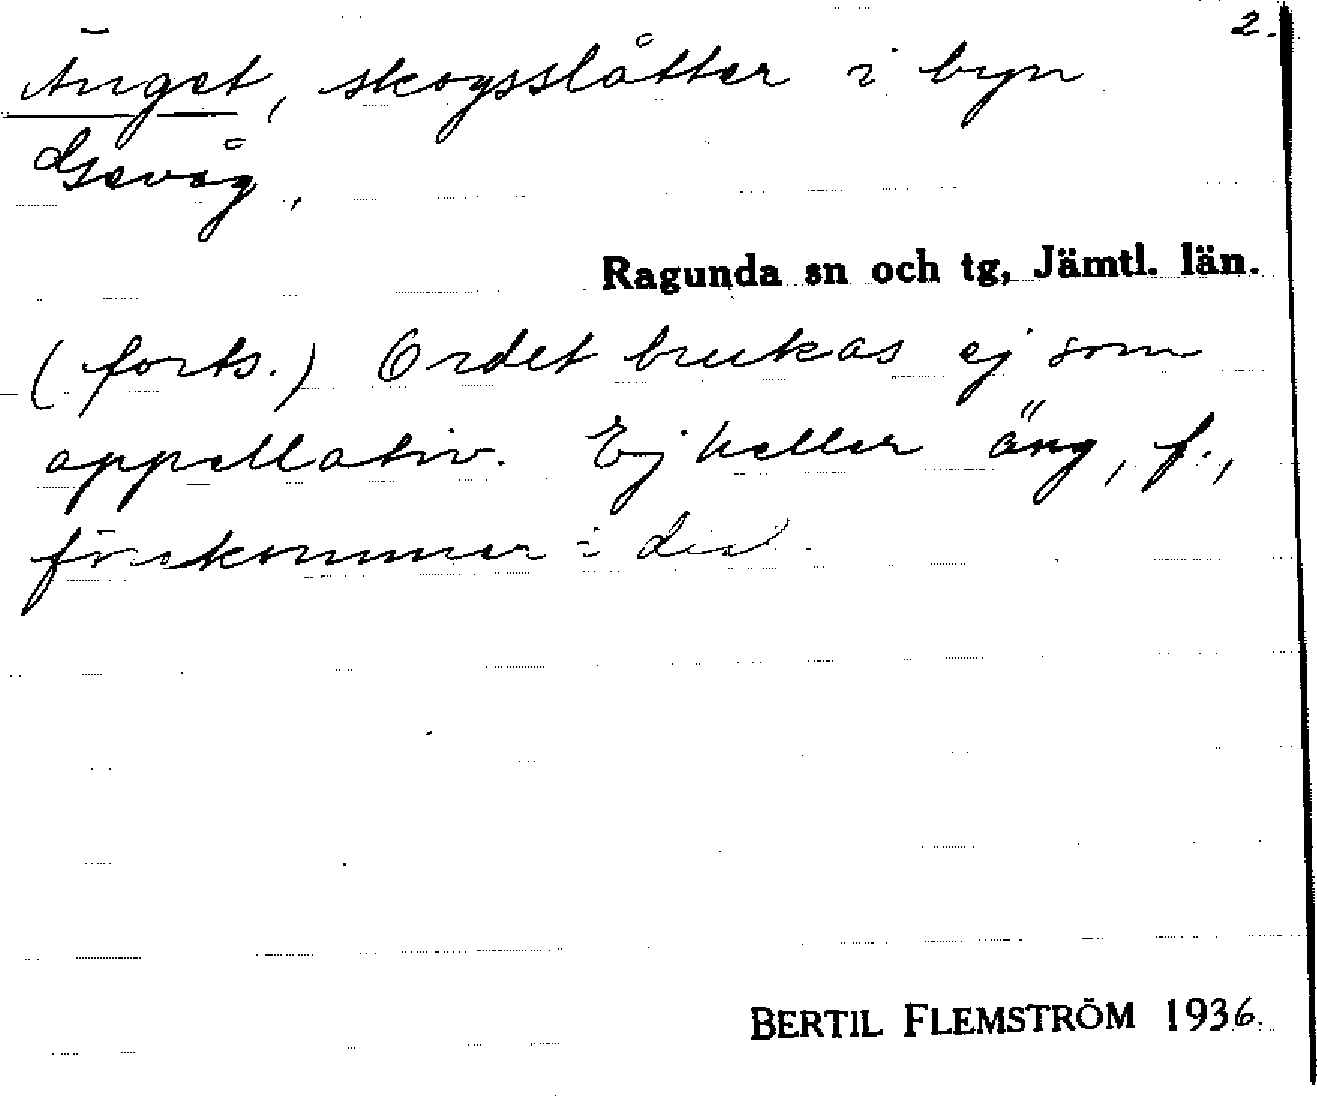 2.
Änget, skogsslåtter i byn
Gevåg,
Ragunda sn och tg, Jämtl. län.
(forts.) Ordet brukas ej som
appellativ. Ej heller äng, f.,
förekommer i dial.
BERTIL FLEMSTRÖM 1936.